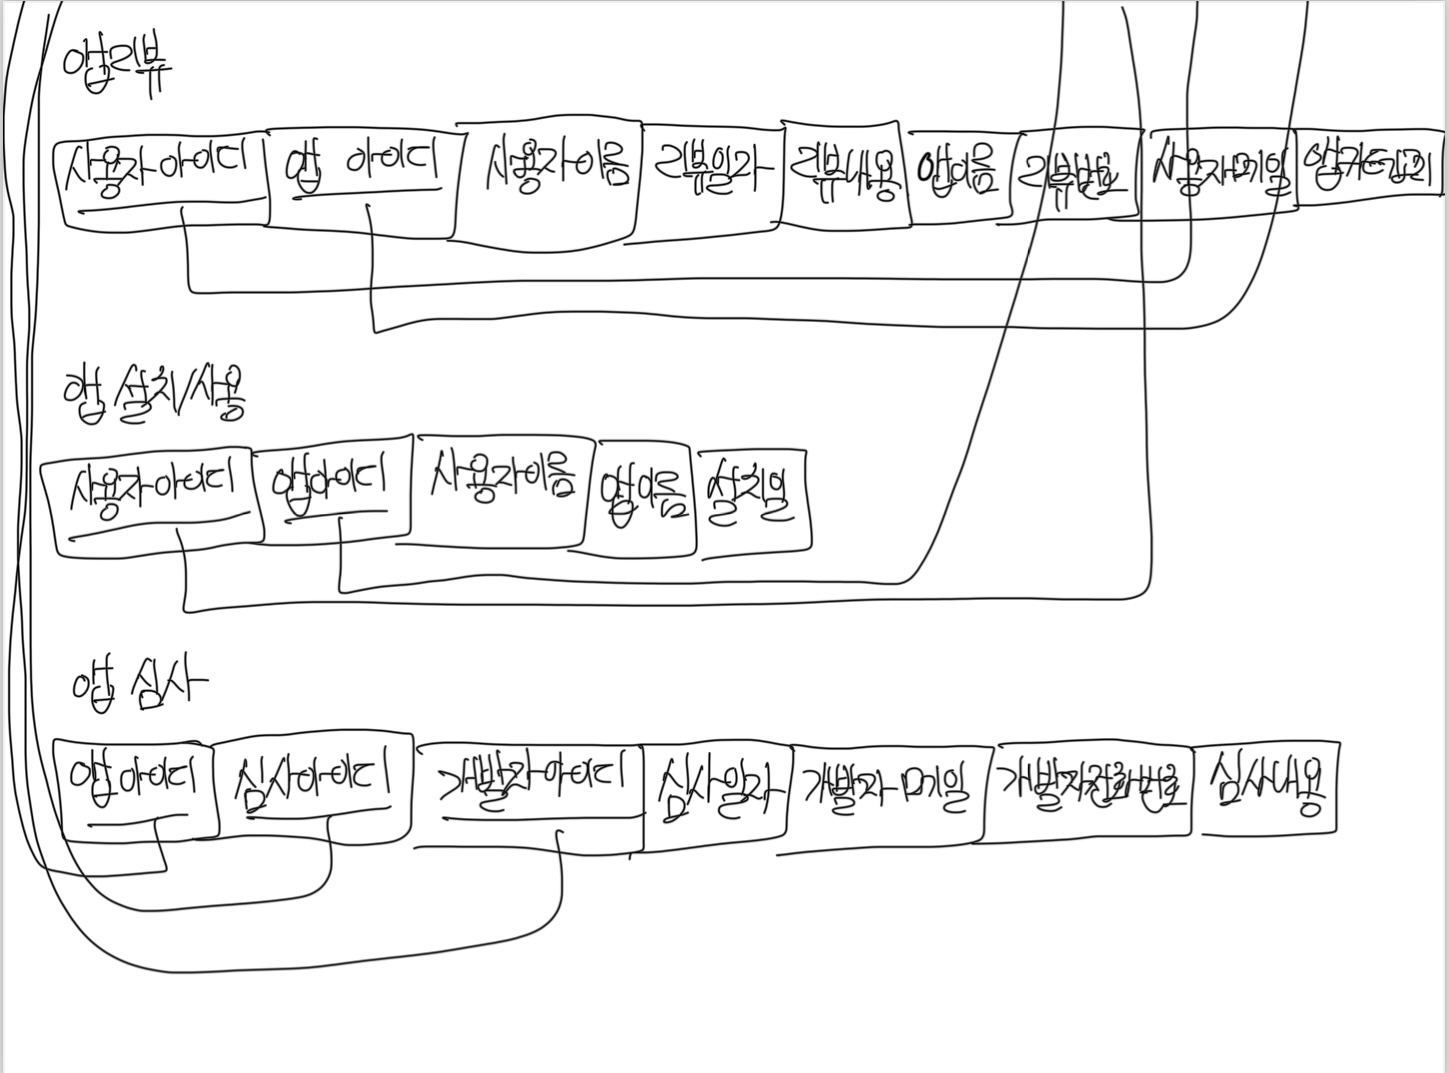 앱리뷰
사용자아이디 앱 아이디 사용자이름 리뷰일자 리뷰내용 앱이름 리뷰번호 사용자메일 앱카테고리
앱 설치/사용
사용자아이디 앱아이디 사용자이름 앱이름 설치일
앱 심사
앱아이디 심사아이디 개발자아이디 심사일자 개발자메일 개발자전화번호 심사내용